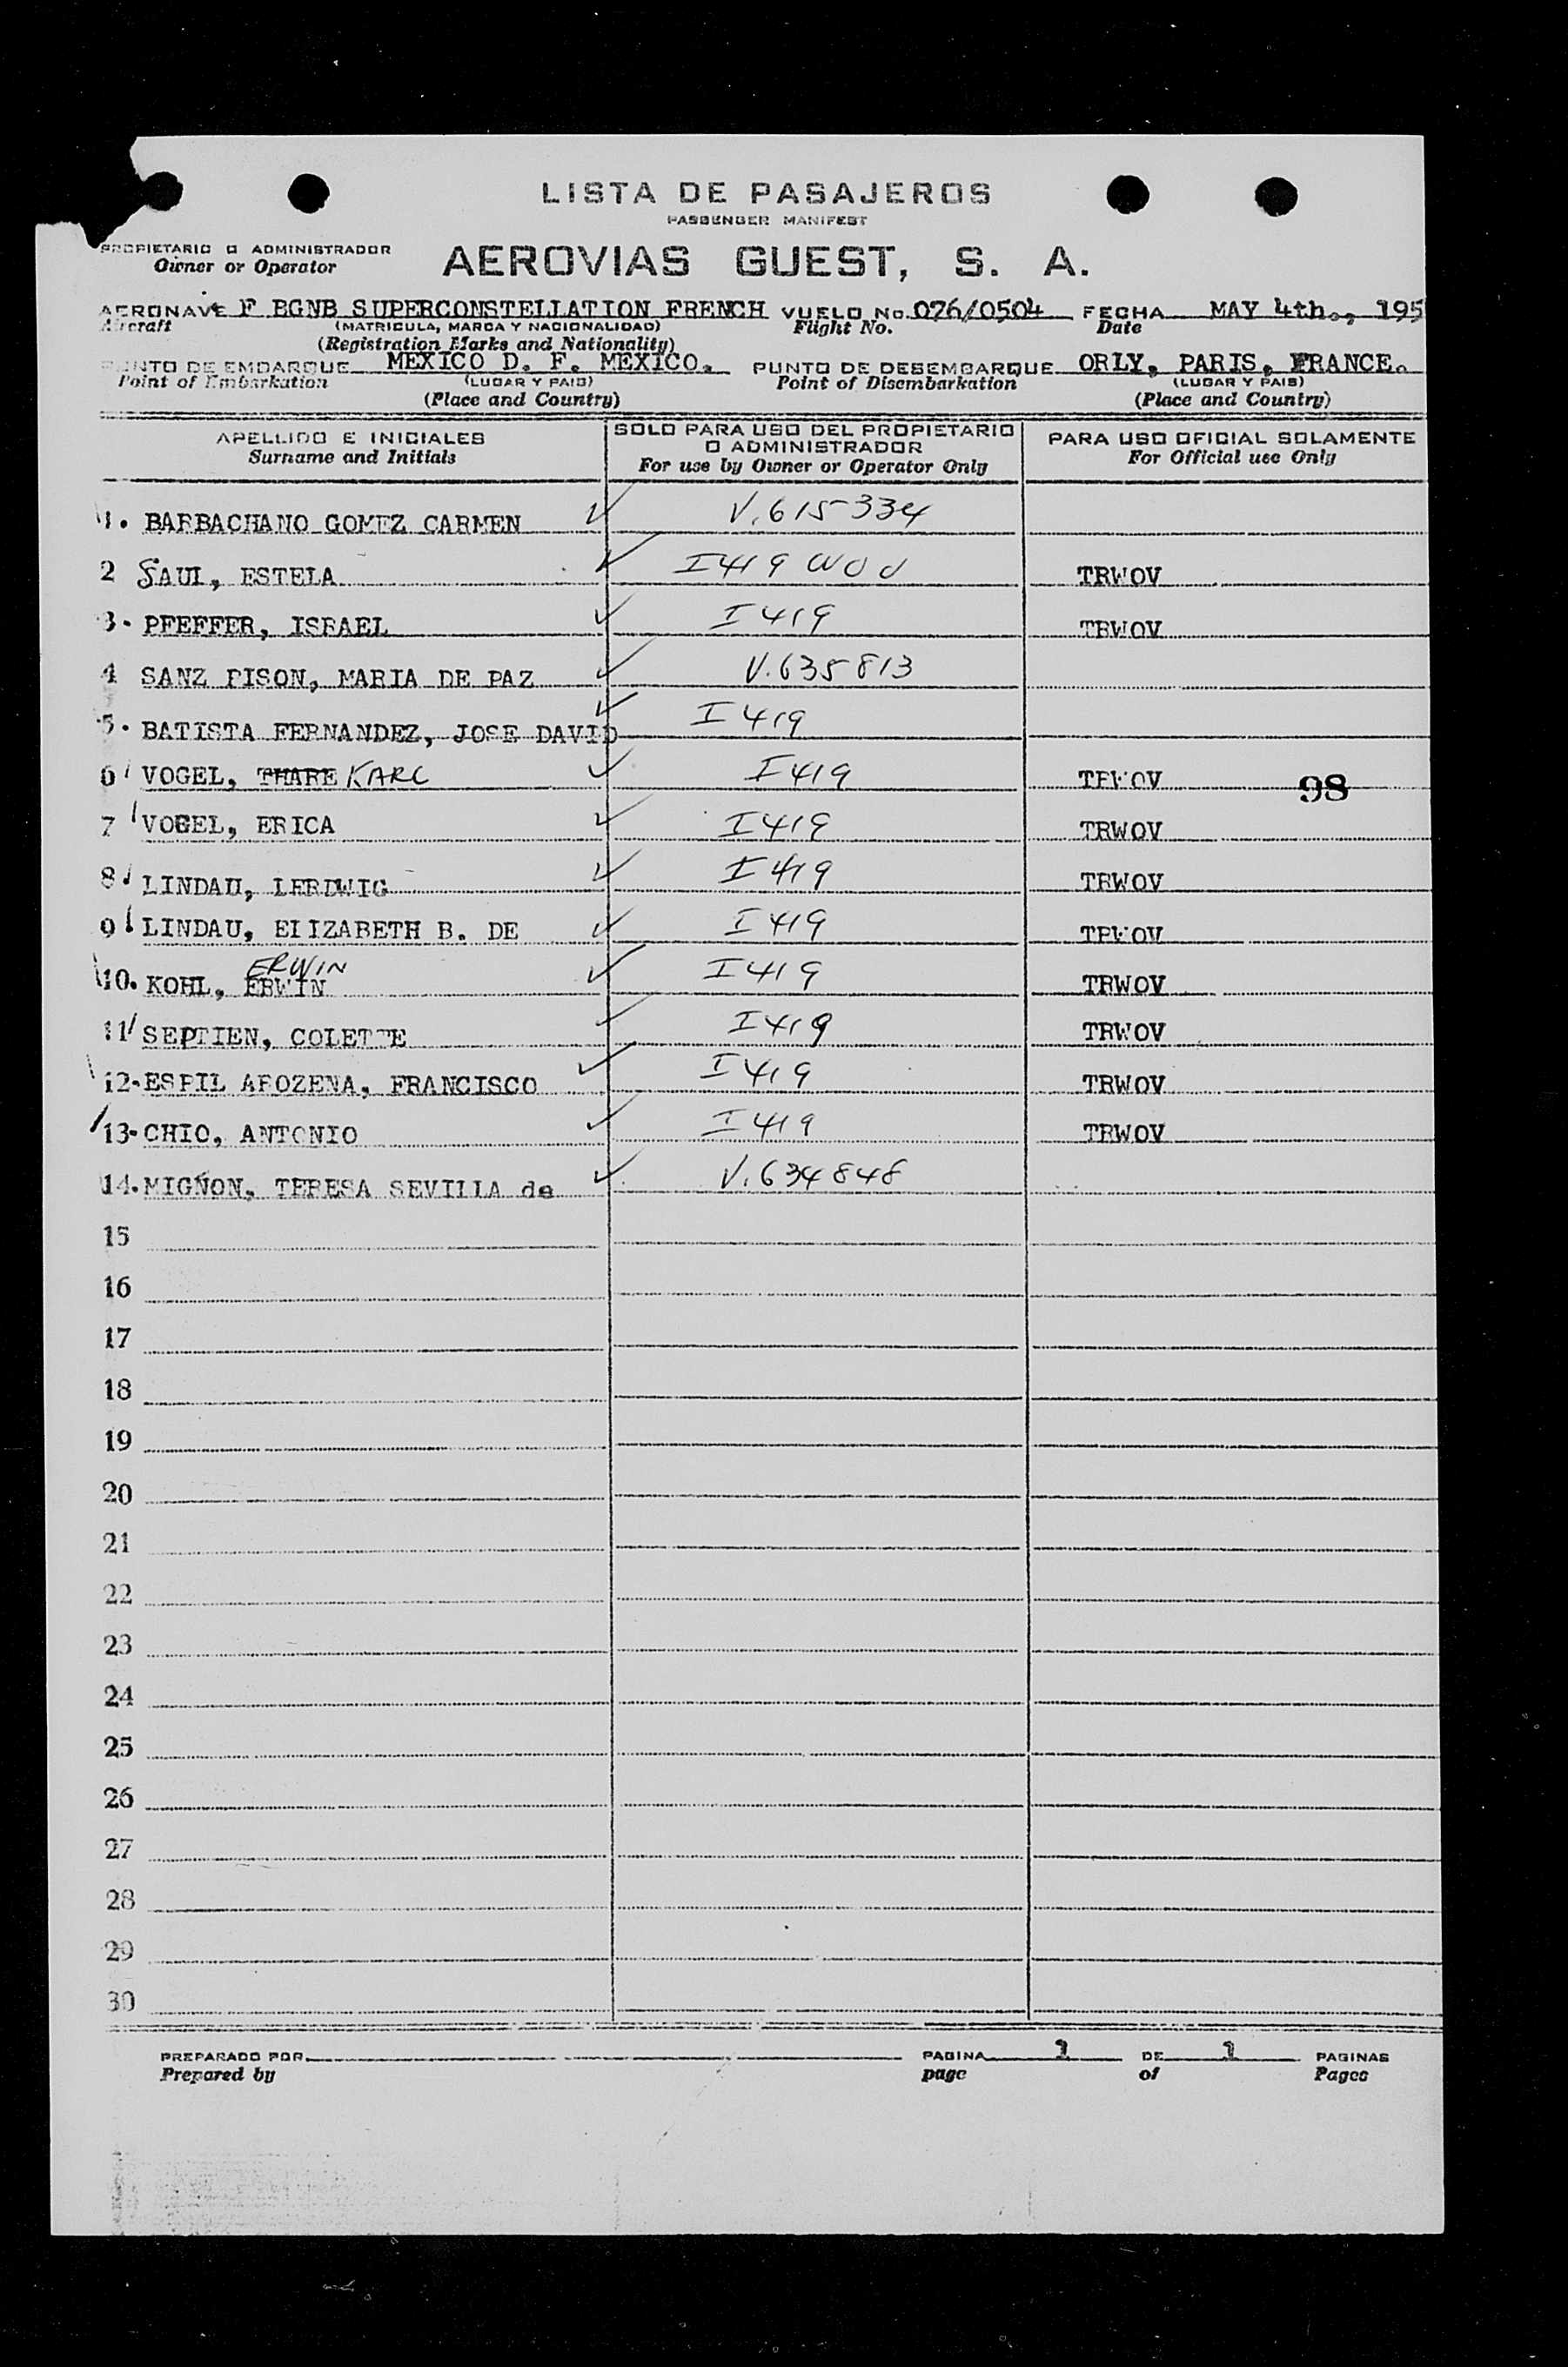 LISTA DE PASAJEROS
PASSENGER MANIFEST
PROPIETARIO O ADMINISTRADOR
Owner or Operator
AEROVIAS GUEST, S. A.
AERONAVE F BGNB SUPERCONSTELLATION FRENCH VUELO No. 076/0504 FECHA MAY 4th., 195
Aircraft (MATRICULA, MARCA Y NACIONALIDAD) Flight No. Date
(Registration Marks and Nationality)
PUNTO DE EMBARQUE MEXICO D. F. MEXICO. PUNTO DE DESEMBARQUE ORLY, PARIS, FRANCE.
Point of Embarkation (LUGAR Y PAIS) Point of Disembarkation (LUGAR Y PAIS)
(Place and Country) (Place and Country)
APELLIDO E INICIALES SOLO PARA USO DEL PROPIETARIO O ADMINISTRADOR PARA USO OFICIAL SOLAMENTE
Surname and Initials For use by Owner or Operator Only For Official use Only
1. BARBACHANO GOMEZ CARMEN V.615334
2 SAUL, ESTELA I419 WOV TRWOV
3. PFEFFER, ISRAEL I419 TRWOV
4 SANZ PISON, MARIA DE PAZ V.635813
5. BATISTA FERNANDEZ, JOSE DAVID I419
6 VOGEL, THARE KARL I419 TRWOV 98
7 VOGEL, ERICA I419 TRWOV
8 LINDAU, LERDWIG I419 TRWOV
9 LINDAU, ELIZABETH B. DE I419 TRWOV
10. KOHL, ERWIN ERWIN I419 TRWOV
11 SEPTIEN, COLETTE I419 TRWOV
12. ESPIL AROZENA, FRANCISCO I419 TRWOV
13. CHIO, ANTONIO I419 TRWOV
14. MIGÑON, TERESA SEVILLA de V.634848
15
16
17
18
19
20
21
22
23
24
25
26
27
28
29
30
PREPARADO POR PAGINA 1 DE 1 PAGINAS
Prepared by page of Pages